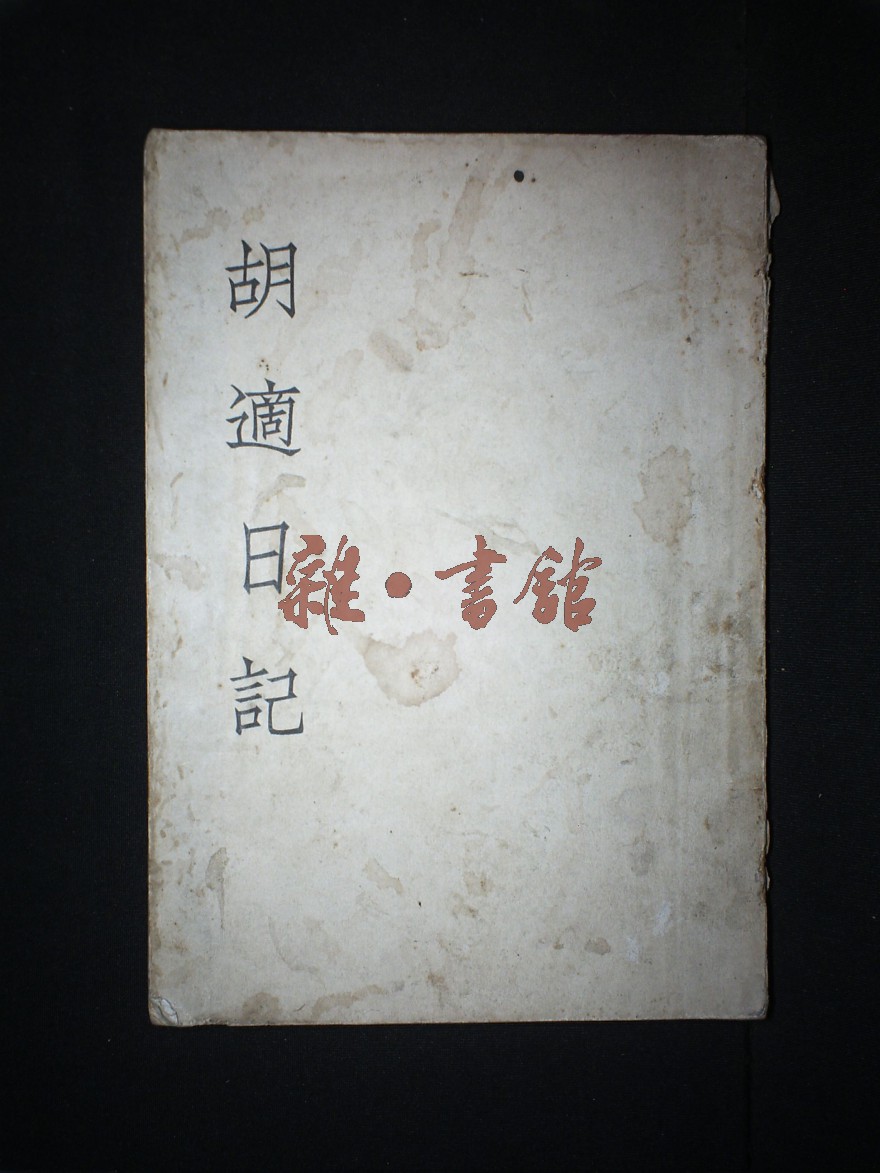 胡適日記
雜·書館